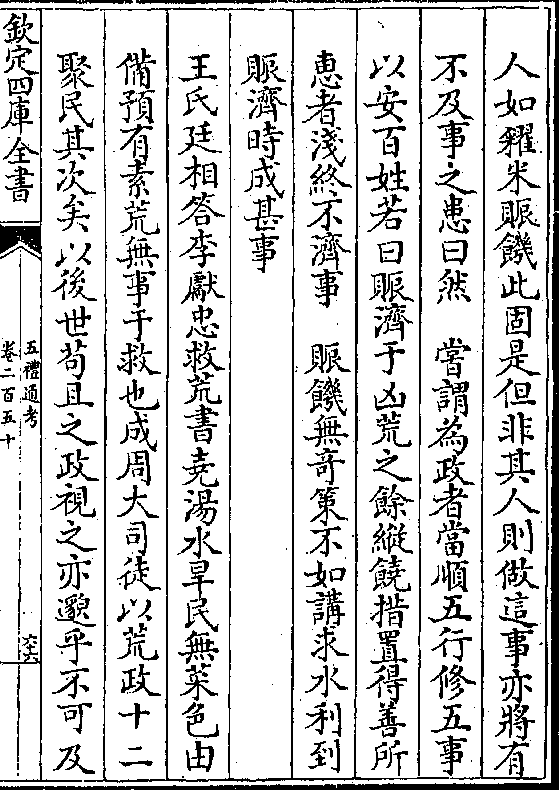 人如糴米賑饑此固是但非其人則做這事亦將有
不及事之患曰然　嘗謂為政者當順五行修五事
以安百姓若曰賑濟于凶荒之餘縱饒措置得善所
惠者淺終不濟事　賑饑無奇策不如講求水利到
賑濟時成甚事
王氏廷相答李獻忠救荒書堯湯水旱民無菜色由
備預有素荒無事于救也成周大司徒以荒政十二
聚民其次矣以後世苟且之政視之亦邈乎不可及
欽定四庫全書
五禮通考
卷二百五十
六十六